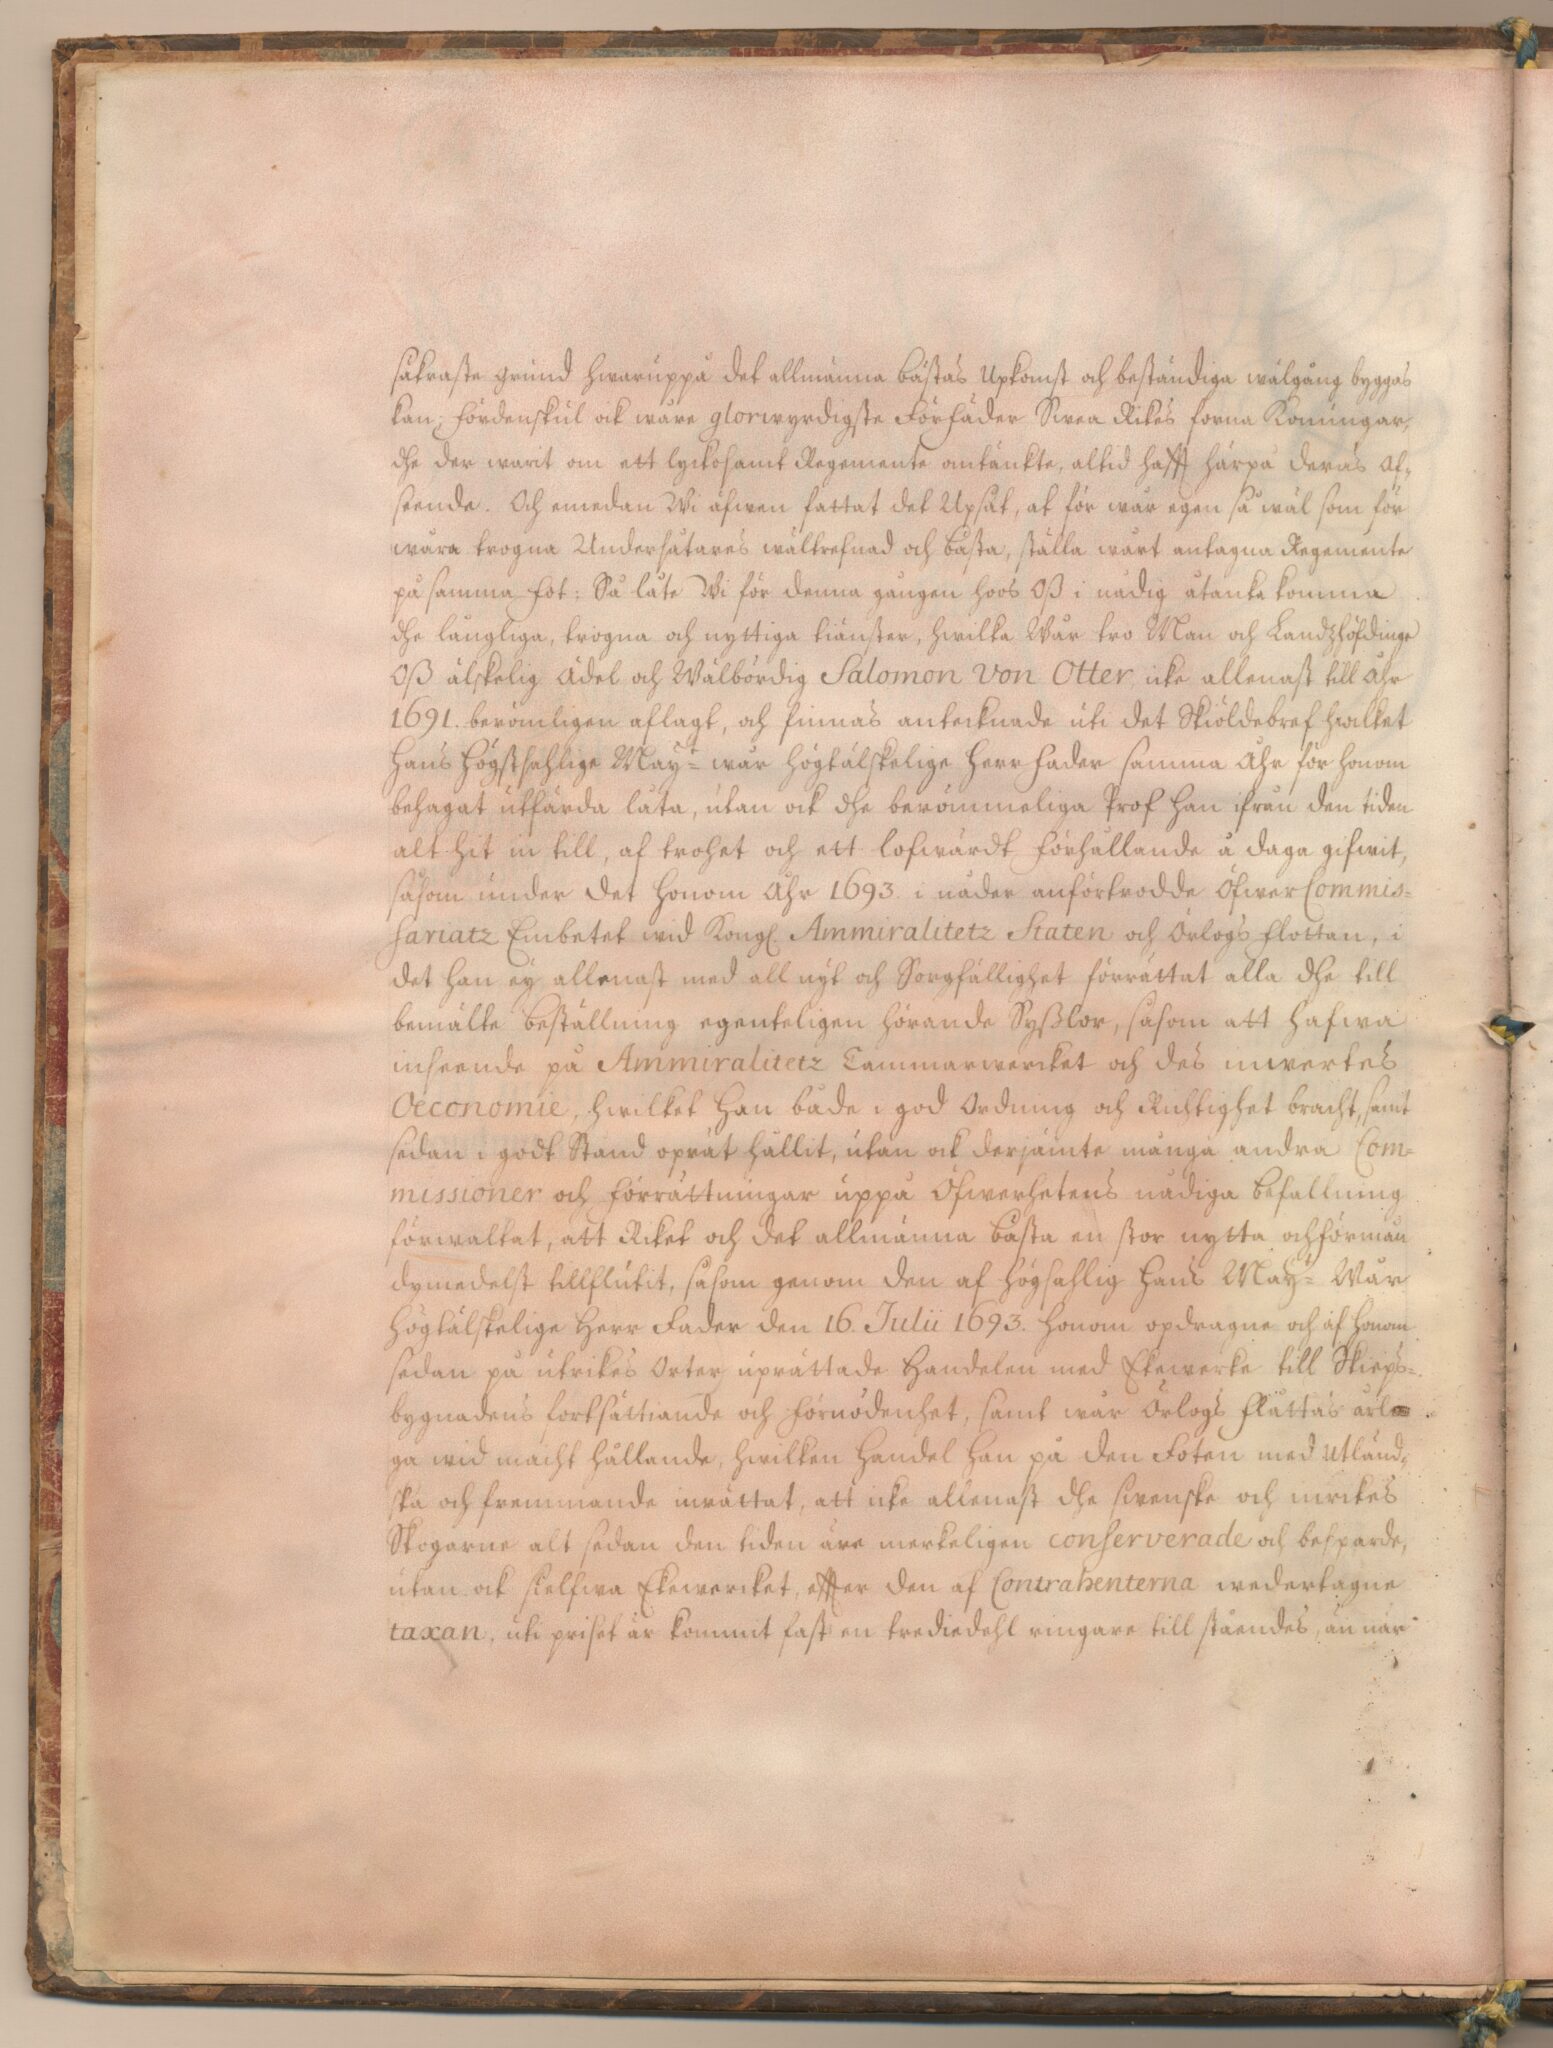 säkraste grund hwaruppå det allmänna bästas Upkomst och beständiga wälgång byggas
kan; fördenskul ock wåre glorwyrdigste Förfäder Swea Rikes forna Konungar,
dhe der warit om ett lyckosamt Regemente omtänkte, altid hafft härpå deras Af-
seende. Och emedan Wi äfwen fattat det Upsåt, at för wår egen så wäl som för
wåra trogna Undersåtares wältrefnad och bästa, ställa wårt antagna Regemente
på samma fot; Så låte Wi för denna gången hoos Oß i nådig åtanka komma
dhe långliga, trogna och nyttiga tiänster, hwilka Wår tro Man och Landzhöfdinge
Oß älskelig Ädel och Wälbördig Salomon von Otter icke allenast till Åhr
1691. berömligen aflagt, och finnas antecknade uti det Skiöldebref hwilket
Hans Högstsahlige May:t wår högtälskelige Herr Fader samma Åhr för honom
behagat utfärda låta, utan ock dhe berömmeliga Prof han ifrån den tiden
alt hit in till, af trohet och ett lofwärdt förhållande å daga gifwit,
såsom under det honom Åhr 1693. i nåder anförtrodde ÖfwerCommis-
sariatz Embetet wid Kongl. Ammiralitetz Staten och Örlogs flottan, i
det han ey allenast med all nyt och Sorgfällighet förrättat alla dhe till
bemälte beställning egenteligen hörande Syßlor, såsom att hafwa
inseende på Ammiralitetz Cammarwercket och des inwertes
Oeconomie, hwilket han både i god Ordning och Richtighet bracht, samt
sedan i godt Stånd oprät hållit, utan ock derjämte många andra Com-
missioner och förrättningar uppå Öfwerhetens nådiga befallning
förwaltat, att Riket och det allmänna bästa en stor nytta och förmån
dymedelst tillflutit, såsom genom den af högsahlig Hans May:t Wår
högtälskelige Herr Fader den 16. Julii 1693. honom opdragne och af honom
sedan på utrikes Orter uprättade Handelen med Ekewerke till Skieps-
bygnadens fortsättiande och förnödenhet, samt wår Örlogs flåttas årl-
ga wid macht hållande, hwilken Handel han på den Foten med Utländ-
ska och fremmande inrättat, att icke allenast dhe swenske och inrikes
Skogarne alt sedan den tiden äre merkeligen conserverade och besparde,
utan ock sielfwa Ekewercket, effter den af Contrahenterna wedertagne
taxan, uti priset är kommit fast en trediedehl ringare till ståendes, än när